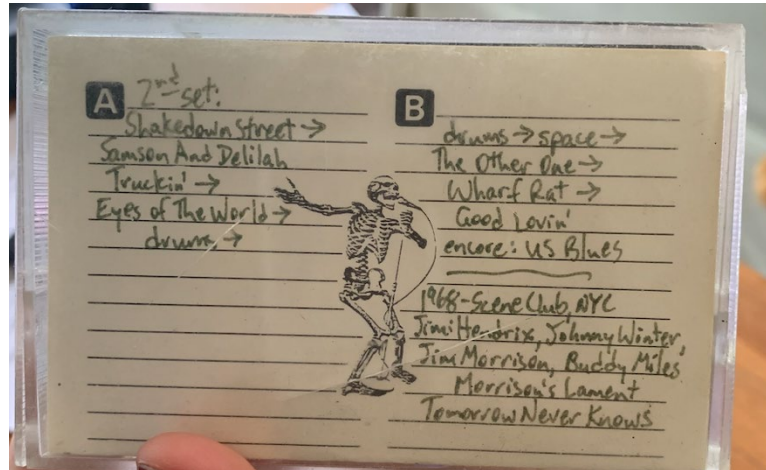 A 2nd set:
Shakedown Street →
Samson And Delilah
Truckin' →
Eyes of The World →
drums →
B
drums → space →
The Other One →
Wharf Rat →
Good Lovin'
encore: US Blues
1968-Scene Club, NYC
Jimi Hendrix, Johnny Winter,
Jim Morrison, Buddy Miles
Morrison's Lament
Tomorrow Never Knows